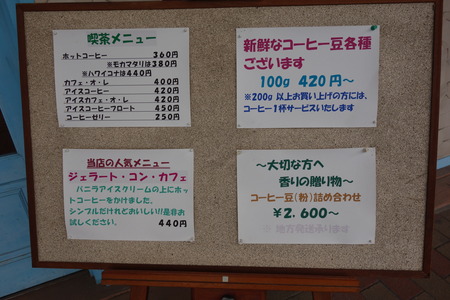 喫茶メニュー
ホットコーヒー 360円
※モカマタリは380円
※ハワイコナは440円
カフェ・オ・レ 400円
アイスコーヒー 420円
アイスカフェ・オ・レ 420円
アイスコーヒーフロート 450円
コーヒーゼリー 250円
新鮮なコーヒー豆各種
ございます
100g 420円〜
※200g 以上お買い上げの方には、
コーヒー1杯サービスいたします
当店の人気メニュー
ジェラート・コン・カフェ
バニラアイスクリームの上にホッ
トコーヒーをかけました。
シンプルだけどおいしい!!是非お
試しください。
440円
〜大切な方へ
香りの贈り物〜
コーヒー豆(粉)詰め合わせ
¥2.600〜
※ 地方発送承ります